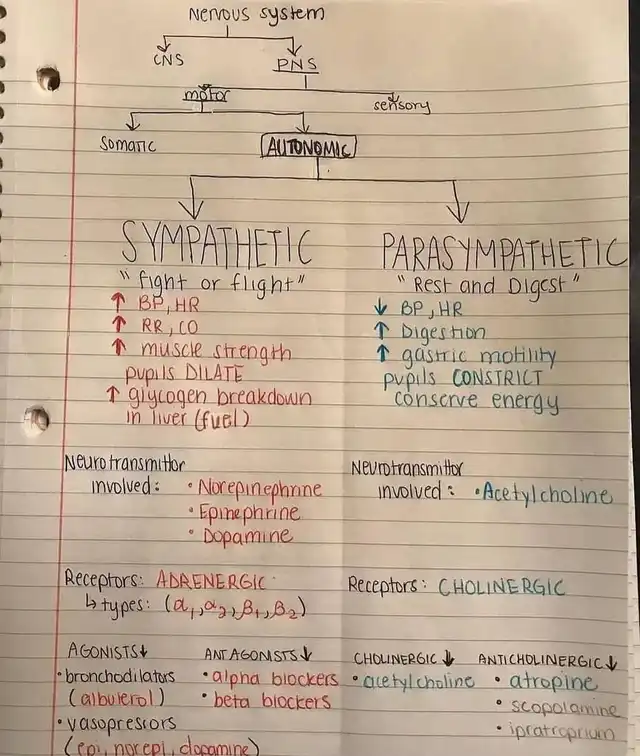 Nervous system
CNS PNS
motor sensory
Somatic AUTONOMIC
SYMPATHETIC
"fight or flight"
↑ BP, HR
↑ RR, CO
↑ muscle strength
pupils DILATE
↑ glycogen breakdown
in liver (fuel)
PARASYMPATHETIC
"Rest and Digest"
↓ BP, HR
↑ Digestion
↑ gastric motility
pupils CONSTRICT
conserve energy
Neurotransmittor
involved: • Norepinephrine
• Epinephrine
• Dopamine
Neurotransmittor
involved: • Acetylcholine
Receptors: ADRENERGIC
↳ types: (α1, α2, β1, β2)
Receptors: CHOLINERGIC
AGONISTS↓
• bronchodilators
(albuterol)
• vasopressors
(epi, norepi, dopamine)
ANTAGONISTS↓
• alpha blockers
• beta blockers
CHOLINERGIC↓
• acetylcholine
ANTICHOLINERGIC↓
• atropine
• scopolamine
• ipratropium